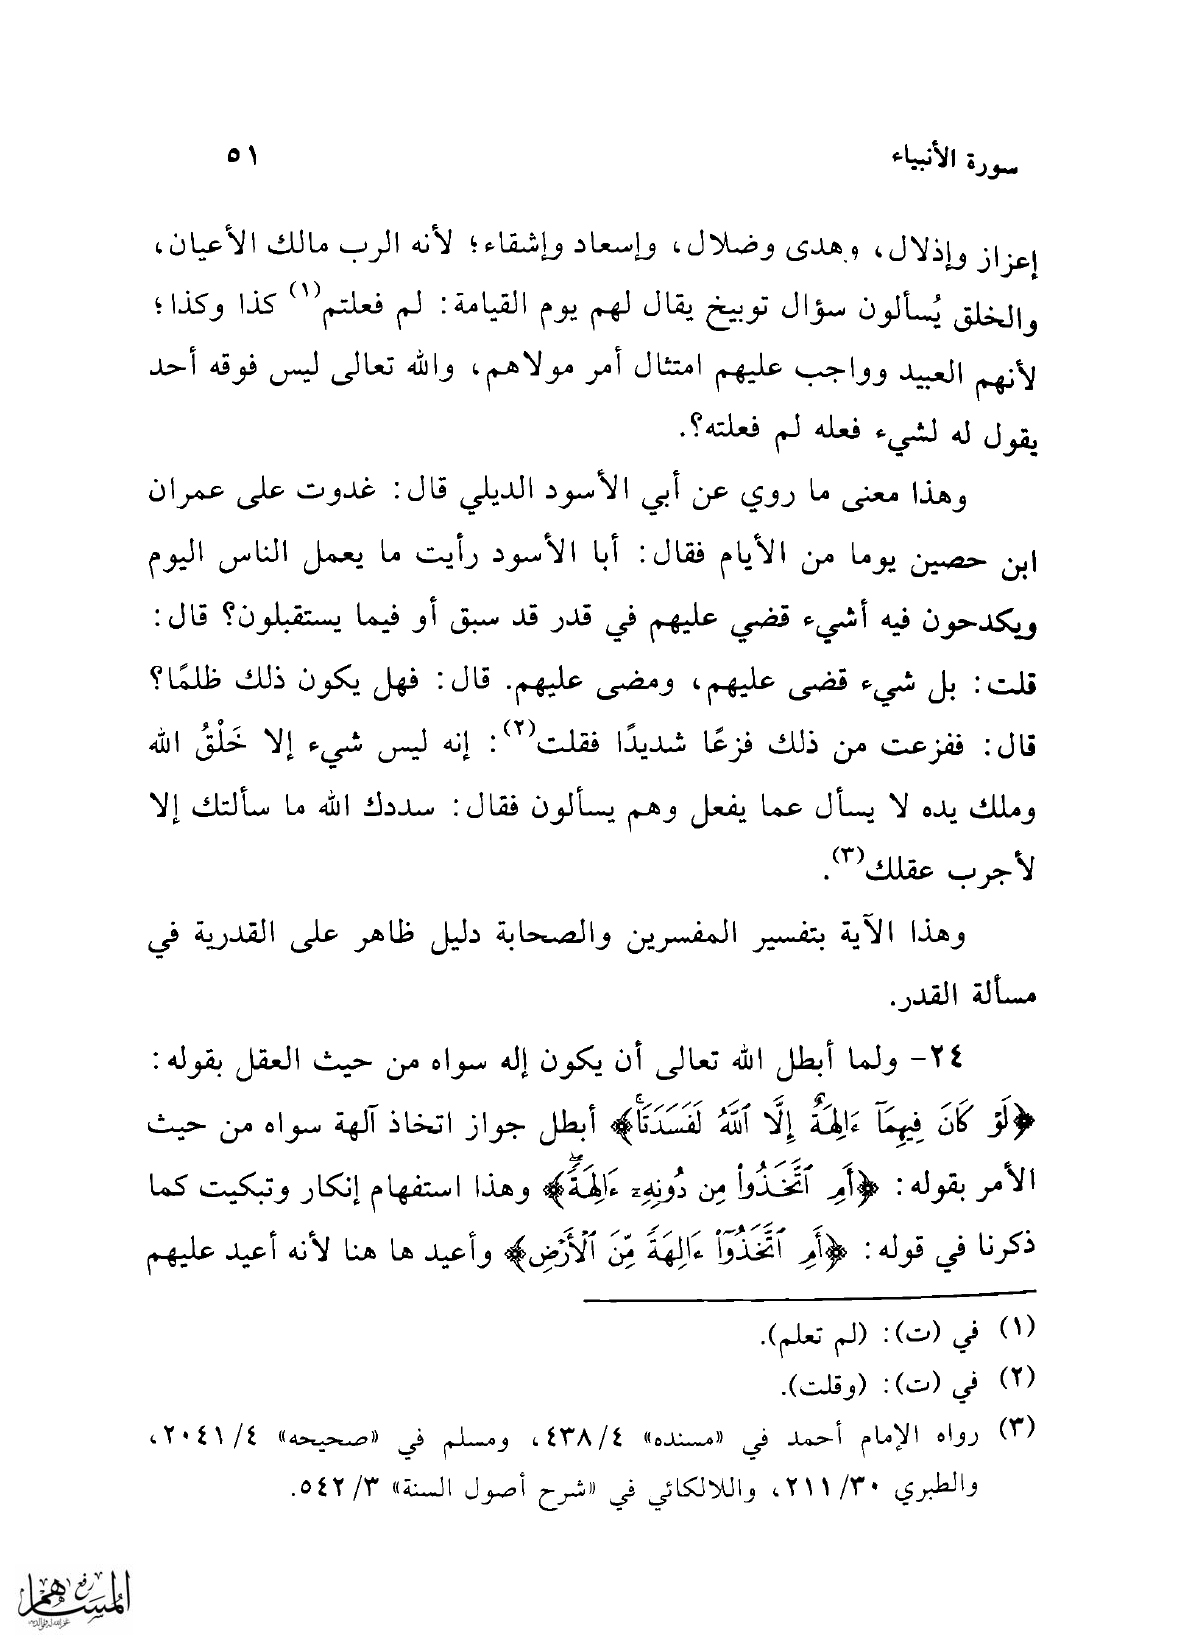 سورة الأنبياء ٥١
إعزاز وإذلال، وهدى وضلال، وإسعاد وإشقاء؛ لأنه الرب مالك الأعيان،
والخلق يُسألون سؤال توبيخ يقال لهم يوم القيامة: لم فعلتم(١) كذا وكذا؛
لأنهم العبيد وواجب عليهم امتثال أمر مولاهم، والله تعالى ليس فوقه أحد
يقول له لشيء فعله لم فعلته؟.
وهذا معنى ما روي عن أبي الأسود الديلي قال: غدوت على عمران
ابن حصين يوما من الأيام فقال: أبا الأسود رأيت ما يعمل الناس اليوم
ويكدحون فيه أشيء قضي عليهم في قدر قد سبق أو فيما يستقبلون؟ قال:
قلت: بل شيء قضى عليهم، ومضى عليهم. قال: فهل يكون ذلك ظلمًا؟
قال: ففزعت من ذلك فزعًا شديدًا فقلت(٢): إنه ليس شيء إلا خَلْقُ الله
وملك يده لا يسأل عما يفعل وهم يسألون فقال: سددك الله ما سألتك إلا
لأجرب عقلك(٣).
وهذا الآية بتفسير المفسرين والصحابة دليل ظاهر على القدرية في
مسألة القدر.
٢٤- ولما أبطل الله تعالى أن يكون إله سواه من حيث العقل بقوله:
﴿لَوۡ كَانَ فِيهِمَآ ءَالِهَةٌ إِلَّا ٱللَّهُ لَفَسَدَتَاۚ﴾ أبطل جواز اتخاذ آلهة سواه من حيث
الأمر بقوله: ﴿أَمِ ٱتَّخَذُواْ مِن دُونِهِۦٓ ءَالِهَةٗۖ﴾ وهذا استفهام إنكار وتبكيت كما
ذكرنا في قوله: ﴿أَمِ ٱتَّخَذُوٓاْ ءَالِهَةٗ مِّنَ ٱلۡأَرۡضِ﴾ وأعيد ها هنا لأنه أعيد عليهم
(١) في (ت): (لم تعلم).
(٢) في (ت): (وقلت).
(٣) رواه الإمام أحمد في «مسنده» ٤٣٨/٤، ومسلم في «صحيحه» ٢٠٤١/٤،
والطبري ٢١١/٣٠، واللالكائي في «شرح أصول السنة» ٥٤٢/٣.